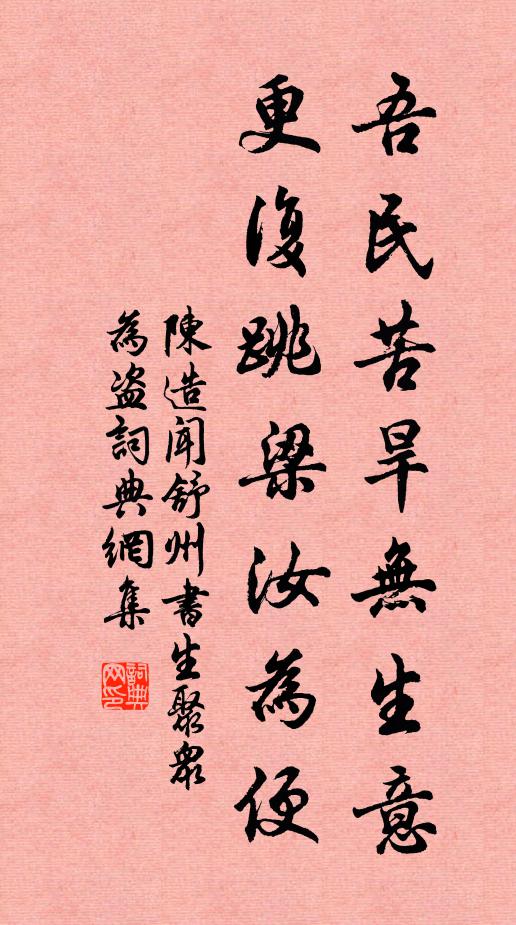 吾民苦旱無生意
更復跳梁汝為便
陳造聞舒州書生聚眾
為盗詞典網集
詞典网印